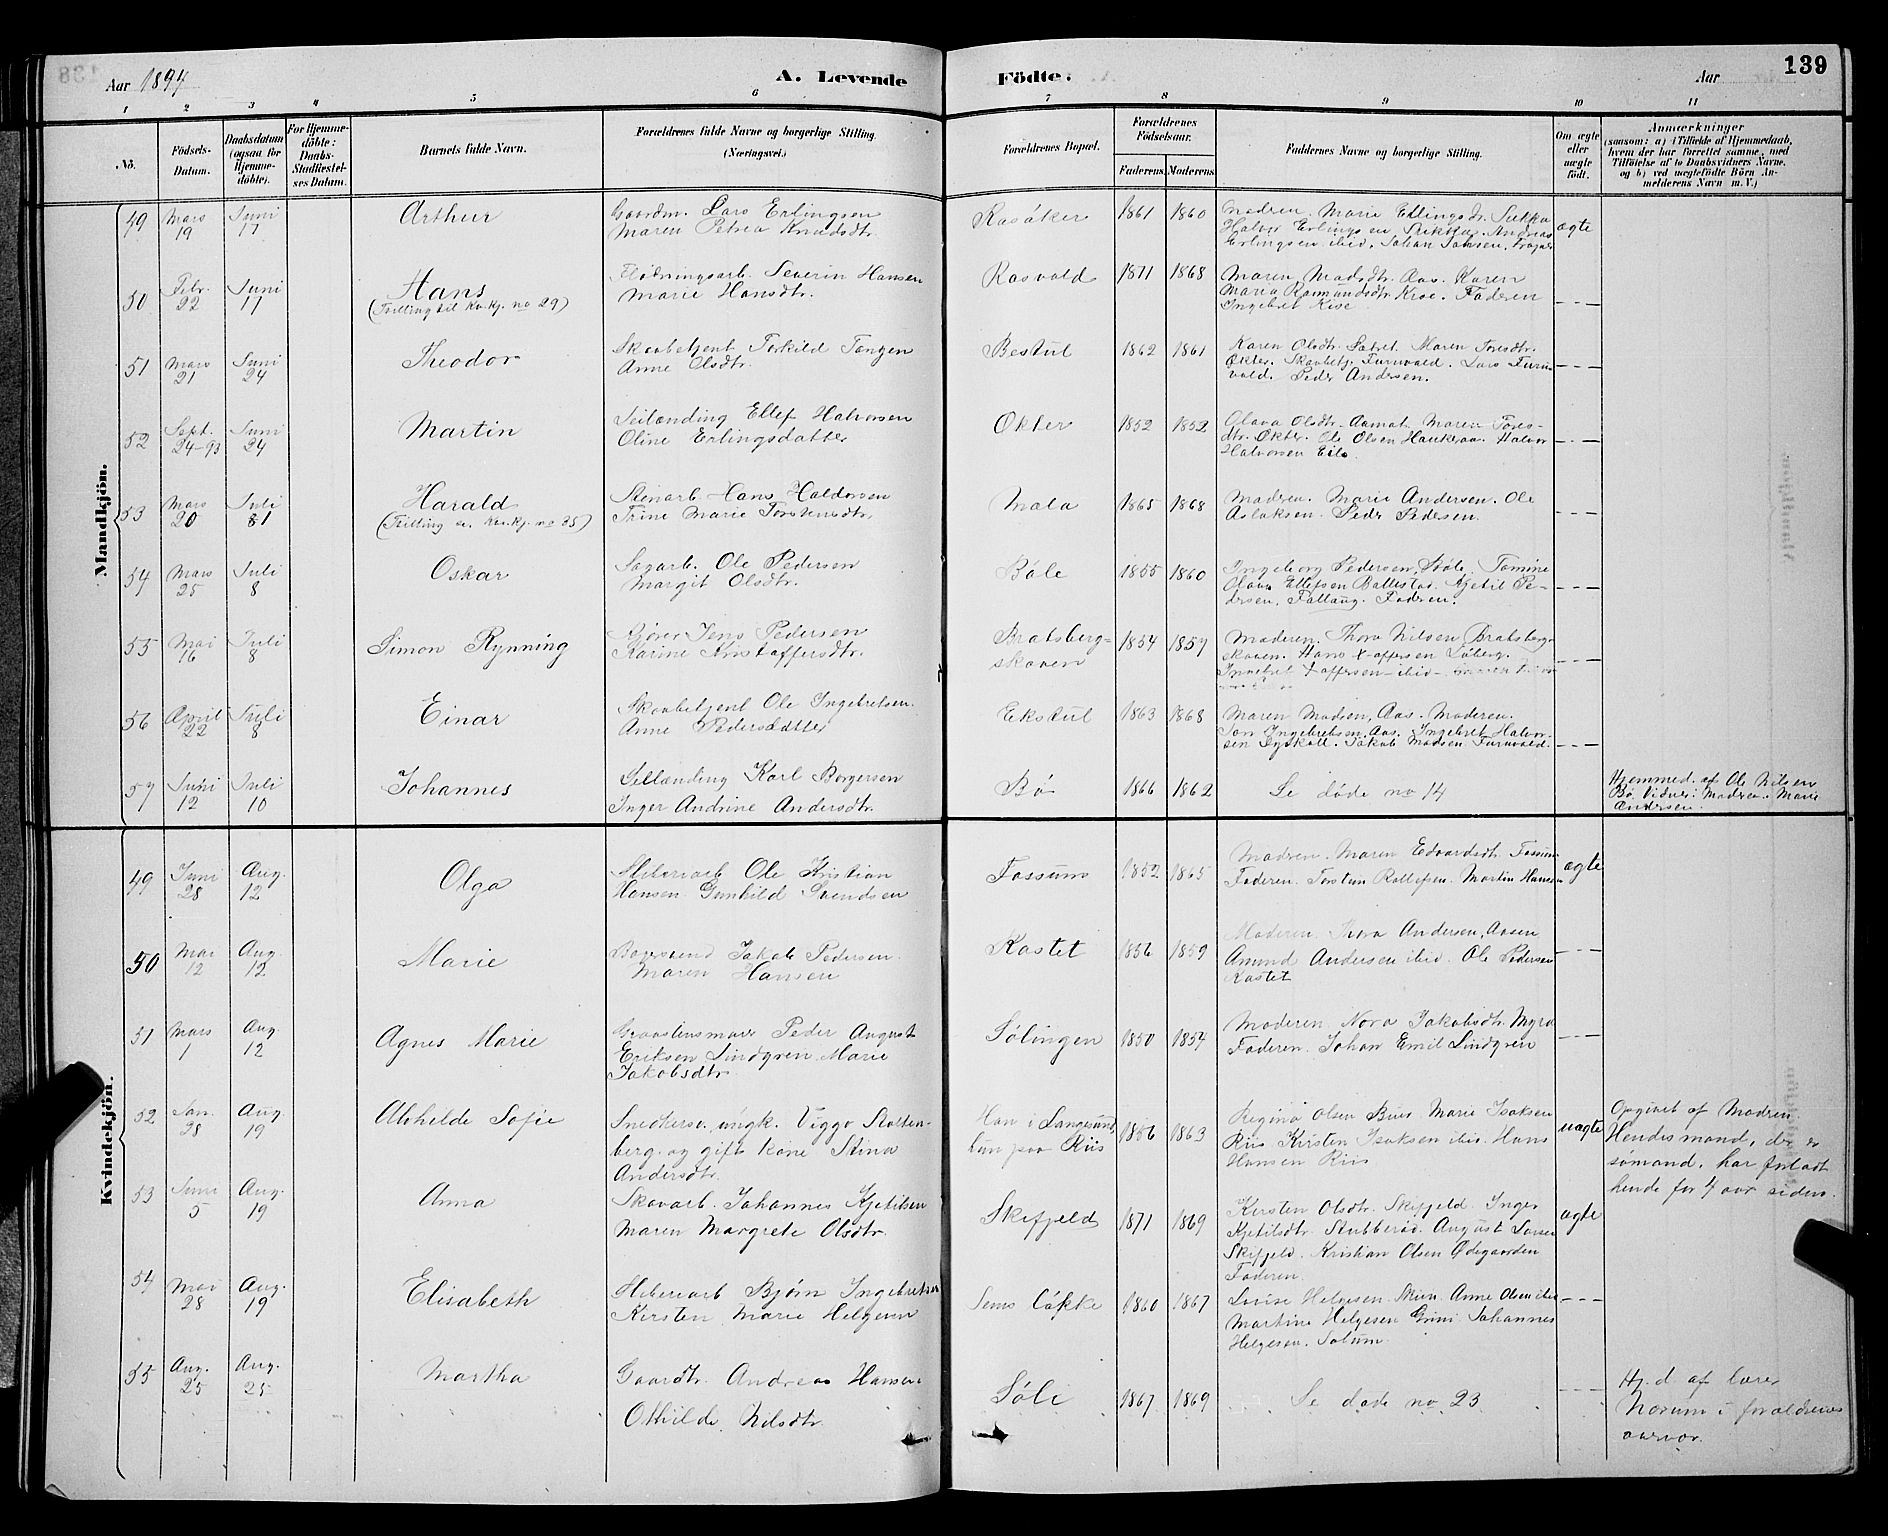 138
Aar 1894
A. Levende
Födte.
Aar
139
1 2 3 4 5 6 7 8 9 10 11
No.
Födsels-
Datum.
Daabsdatum
(ogsaa for
Hjemme-
döbte).
For Hjemme-
döbte:
Daabs-
Stadfæstel-
ses Datum.
Barnets fulde Navn.
Forældrenes fulde Navne og borgerlige Stilling.
(Næringsvei.)
Forældrenes Bopæl.
Forældrenes
Födselsaar.
Faderens. Moderens.
Faddernes Navne og borgerlige Stilling.
Om ægte
eller
uægte
födt.
Anmærkninger
(saasom: a) i Tilfælde af Hjemmedaab,
hvem der har forrettet samme, med
Tilföielse af to Daabsvidners Navne,
og b) ved uægtefödte Börn An-
melderens Navn m. V.)
Mandkjön.
49
Mars
19
Juni
17
Arthur
Gaardm. Lars Erlingsen
Maren Petrea Knudsdtr.
Rasåker
1861 1860
Madren. Marie Ellingsdr.
Halvor Erlingsen Andreas
Erlingsen ibid. Johan Jansen.
ægte
50
Febr.
22
Juni
17
Hans
(Tvilling til Kv.kj. no 29)
Flødningsarb. Severin Hansen
Marie Hansdtr.
Rasvald
1871 1868
Maren Madsdtr. Aas. Karen
Maria Kroe. Faderen
Ingebret Kise
51
Mars
21
Juni
24
Theodor
Skovbetjent Torkild Tangen
Anne Olsdtr.
Bestul
1862 1861
Karen Olsdtr. Sætret. Maren Toresdtr.
Økter. Skovbetj. Furuvald. Lars Furu-
vald. Peder Andersen.
52
Sept.
24-93
Juni
24
Martin
Seilænding Ellef Halvorsen
Oline Erlingsdatter
Økter
1852 1852
Olava Olsdtr. Aamot. Maren Tores-
dtr. Økter. Ole Olsen Haukeraa. Halvor
Halvorsen
53
Mars
20
Juli
81
Harald
(Tvilling se Kv.kj. no 35)
Stenarb. Hans Haldorsen
Trine Marie Torstensdtr.
Mæla
1865 1868
Madren. Marie Andersen. Ole
Aslaksen. Peder Pedersen.
54
Mars
25
Juli
8
Oskar
Sagarb. Ole Pedersen
Margit Olsdtr.
Bøle
1855 1860
Ingeborg Pedersen, Bøle. Tomine
Olava Ellefsen Ballestad. Kjetil Pe-
dersen, Fallaug. Fadren.
55
Mai
16
Juli
8
Simon Rynning
Kjører Jens Pedersen
Karine Kristoffersdtr.
Bratsberg-
skoven
1854 1857
Maderen. Thora Nilsen Bratsberg-
skoven. Hans X-offersen Løberg.
Ingebret X-offersen ibid.
56
April
22
Juli
8
Einar
Skovbetjent Ole Ingebretsen.
Anne Pedersdatter
Ekstul
1863 1868
Maren Madsen, Aas. Moderen.
Jon Ingebretsen. Aas. Ingebret Halvor-
sen Jakob Madsen Furuvald.
57
Juni
12
Juli
10
Johannes
Sellænding Karl Borgersen
Inger Andrine Andersdtr.
Bø
1866 1862
Se døde no 14
Hjemmed. af Ole Nilsen
Bø. Vidner: Madren. Marie
Andersen.
Kvindekjön.
49
Juni
28
Aug.
12
Olga
Sliberiarb Ole Kristian
Hansen. Gunhild Svendsen
Fossum
1852 1865
Madren. Maren Edvardsdtr. Fossum
Faderen. Torsten Rollefsen. Martin Hansen
ægte
50
Mai
12
Aug.
12
Marie
Jakob Pedersen.
Maren Hansen
Kastet
1856 1859
Moderen. Thora Andersen, Aasen
Amund Andersen ibid. Ole Pedersen
Kastet
51
Mars
1
Aug.
12
Agnes Marie
Peder August
Eriksen Lindgren. Marie
Jakobsdtr.
Sølingen
1850 1854
Moderen. Nora Jakobsdtr. Myra
Faderen. Johan Emil Lindgren
52
Jan.
28
Aug
19
Abhilde Sofie
Snedkersv. ungk. Viggo Stolten-
berg og gift kone Stina
Andersdtr.
Han i Langesund,
hun paa Riis
1856 1863
Regina Olsen Riis Marie Isaksen
Riis Kirsten Isaksen ibid. Hans
Hansen Riis
uægte
Opgivet af Madren
Hendes mand, der er
sømand, har forladt
hende for 4 aar siden.
53
Juni
5
Aug.
19
Anna
Skovarb. Johannes Kjetilsen
Maren Margrete Olsdtr.
Skifjeld
1871 1869
Kirsten Olsdtr. Skifjeld. Inger
Kjetilsdtr. Stubberød. August Larsen
Skifjeld. Kristian Olsen Ødegaarden
Faderen.
ægte
54
Mai
28
Aug.
19
Elisabeth
Sliberiarb Bjørn Ingebretsen
Kirsten Marie Helgesen
Sems løkke
1860 1867
Lovise Helgesen. Skien. Anne Olsen ibid
Martine Helgesen Grini. Johannes
Helgesen. Solum.
55
Aug.
25
Aug.
25
Martha
Gaardbr. Andreas Hansen.
Othilde Nilsdtr.
Søli
1867 1869
Se døde no 23
Hj.d. af lærer
Norum i forældrenes
nærvær.